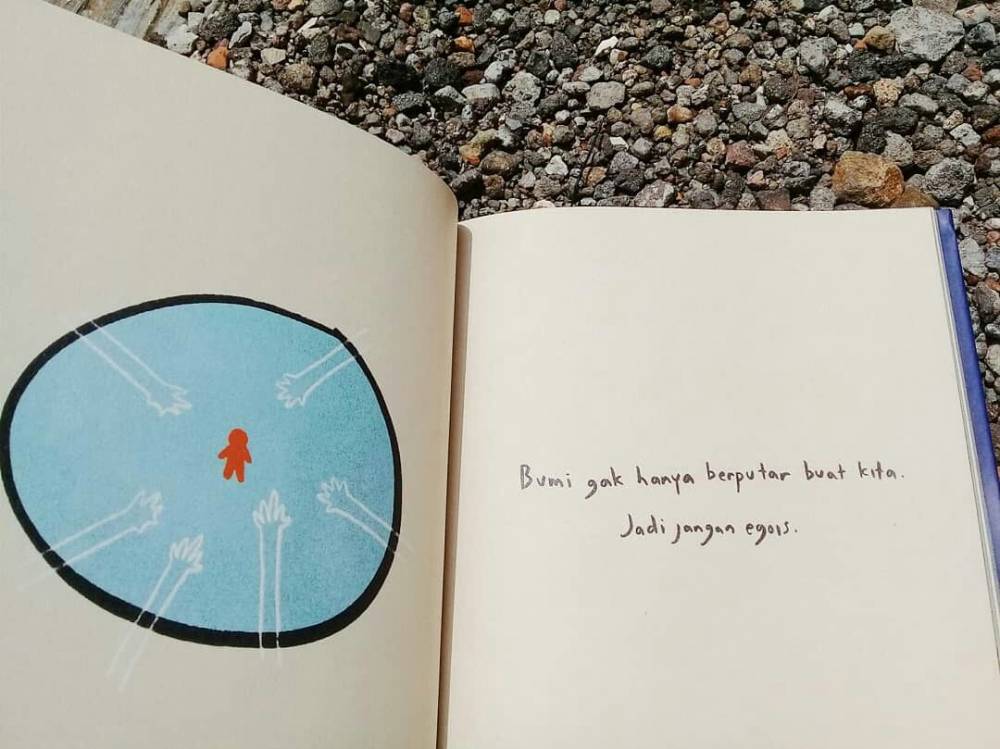 Bumi gak hanya berputar buat kita.
Jadi jangan egois.